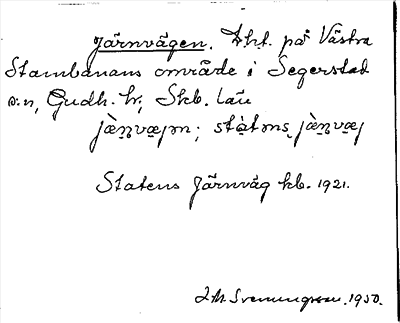 Järnvägen. Trkt. på Västra
Stambanans område i Segerstad
s:n, Gudh. hr, Skb. län
jæ̀ṇvæjən; stàtəns jæ̀ṇvæj
Statens Järnväg kb. 1921.
I.M. Svenungsson. 1930.